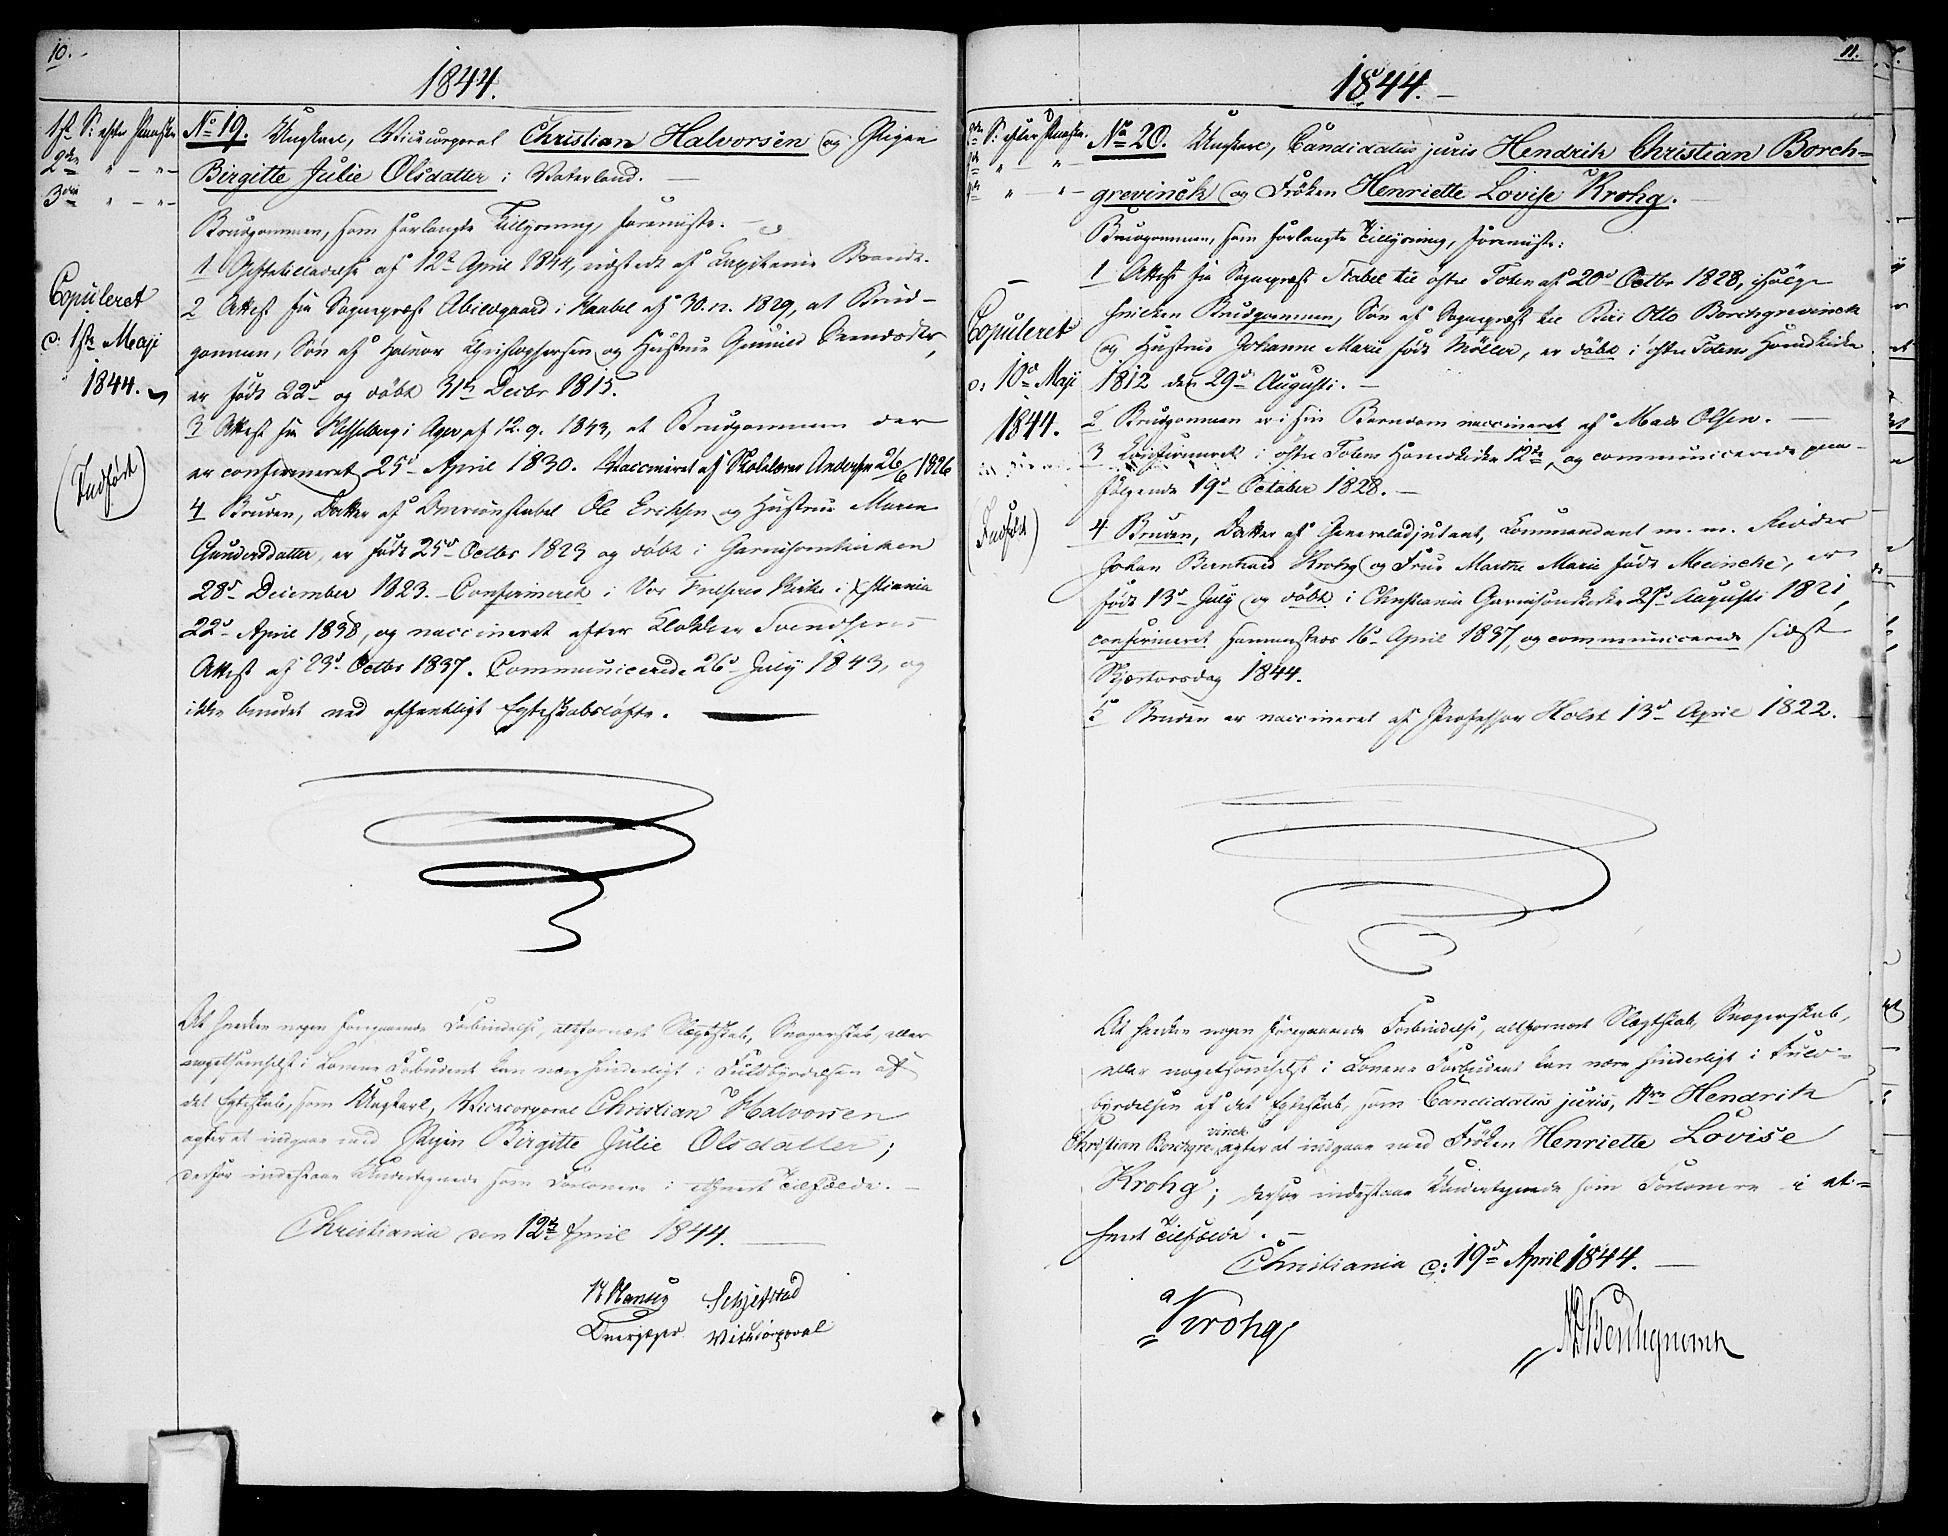 10.
1844.
1ste S: efter Paaske
2den " — " —
3die " — " —
Copuleret
d: 1ste Maji
1844.
(Indført)
No 19. Ungkarl, Vicecorporal Christian Halvorsen og Pigen
Birgitte Julie Olsdatter i Vaterland. —
Brudgommen, som forlangte Tillysning, foreviste. —
1 Giftetilladelse af 12te April 1844, udstedt af Capitaine Brandt.
2 Attest fra Sognepræst Abildgaard i af 30.12. 1829, at Brud-
gommen, Søn af Halvor Christophersen og Hustrue Gunild
er født 22d og döbt 31te Decbr 1815.
3 Attest fra Hesselberg i Ager af 12.9. 1843, at Brudgommen der
er confirmeret 25d April 1830. Vaccineret af Skolelærer Andersen 26/6 1826
4 Bruden, Datter af Ole Eriksen og Hustrue Maren
Gundersdatter, er født 25d Octbr 1823 og döbt i Garnisonskirken
28d December 1823. — Confirmeret i Vor Frelsers Kirke i Xstiania
22d April 1838, og vaccineret efter Klokker Svendsens
Attest af 23d Octbr 1837. Communicerede 26d July 1843, og
ikke bundet ved offentligt Egteskabsløfte.
At hverken nogen foregaaende Forbindelse, altfornært Slægtskab, Svogerskab, eller
nogetsomhelst i Loven Forbudent kan være hinderligt i Fuldbyrdelsen af
det Egteskab, som Ungkarl, Vicecorporal Christian Halvorsen
agter at indgaae med Pigen Birgitte Julie Olsdatter;
derfor indestaae Undertegnede som Forlovere i ethvert Tilfælde. —
Christiania den 12te April 1844.
Hansen Schjefstad
Overjæger Vicecorporal
11.
1844. —
2den S: efter Paaske.
" —
" — " —
Copuleret
d: 10d Maji
1844.
(Indført)
No 20. Ungkarl, Candidatus juris Hendrik Christian Borch=
grevinck og Frøken Henriette Lovise Krohg. —
Brudgommen, som forlangte Tillysning, foreviste:
1 Attest fra Sognepræst Stabel til østre Toten af 20d Octbr 1828, ifølge
hvilken Brudgommen, Søn af Sognepræst til Biri Otto Borchgrevinck
og Hustrue Johanne Marie født Möller, er döbt i østre Totens Hovedkirke
1812 den 29d Augusti. —
2 Brudgommen er i sin Barndom vaccineret af Mads Olsen. —
3 Confirmeret i østre Totens Hovedkirke 12te, og communicerede paa-
følgende 19d October 1828. —
4 Bruden, Datter af Generaladjutant, Commandant m. m. Ridder
Johan Bernhard Krohg og Frue Marthe Marie født Meincke, er
født 13d July og döbt i Christiania Garnisonskirke 27d Augusti 1821,
confirmeret sammesteds 16d April 1837, og communicerede sidst
Skjertorsdag 1844.
5 Bruden er vaccineret af Professor Holst 13d April 1822.
At hverken nogen foregaaende Forbindelse, altfornært Slægtskab, Svogerskab,
eller nogetsomhelst i Loven Forbudent kan være hinderligt i Fuld-
byrdelsen af det Egteskab, som Candidatus juris, Hrr Hendrik
Christian Borchgrevinck agter at indgaae med Frøken Henriette Lovise
Krohg; derfor indestaae Undertegnede som Forlovere i et=
hvert Tilfælde. —
Christiania d: 19d April 1844. —
Krohg
Borchgrevinck